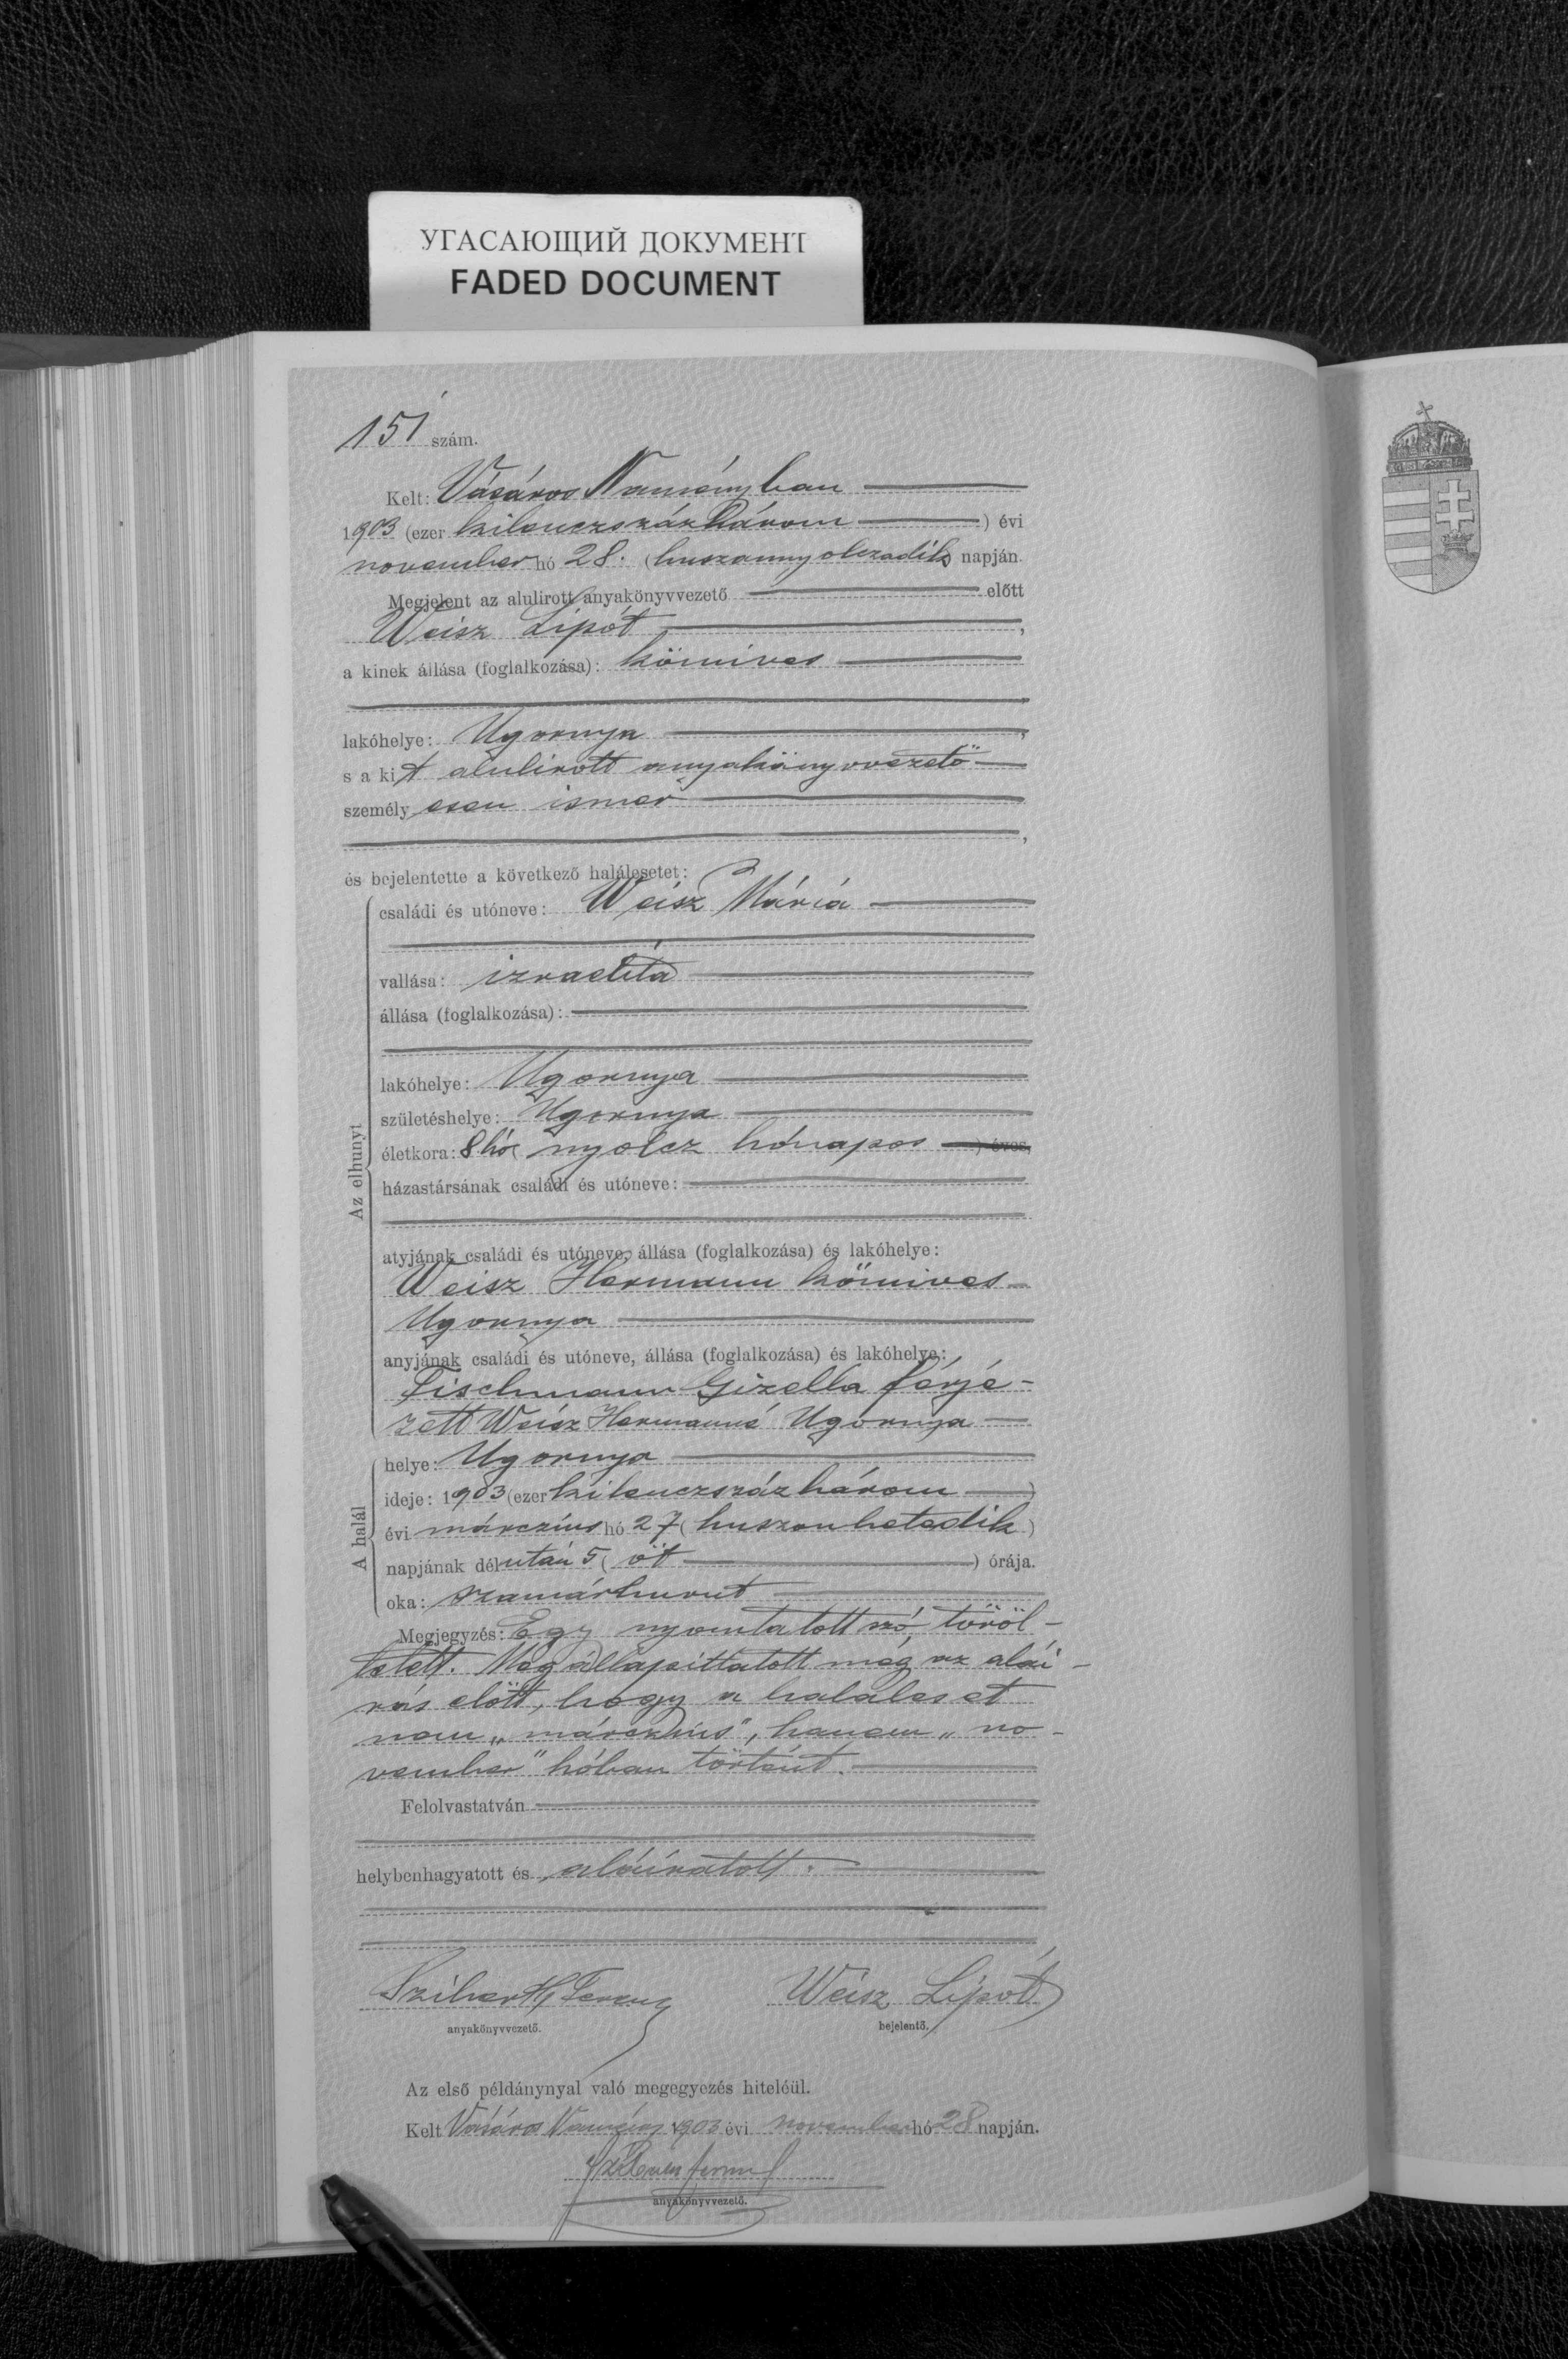 УГАСАЮЩИЙ ДОКУМЕНТ
FADED DOCUMENT
151 szám.
Kelt: Vásáros Naményban
1903 (ezer kilenczszázhárom) évi
november hó 28. (huszonnyolczadik) napján.
Megjelent az alulirott anyakönyvvezető előtt
Weisz Lipót,
a kinek állása (foglalkozása): kömives
,
lakóhelye: Ugornya,
s a kit alulirott anyakönyvvezető
személyesen ismer
,
és bejelentette a következő halálesetet:
Az elhunyt
családi és utóneve: Weisz Mária
vallása: izraelita
állása (foglalkozása):
lakóhelye: Ugornya
születéshelye: Ugornya
életkora: 8 hó (nyolcz hónapos) éves,
házastársának családi és utóneve:
atyjának családi és utóneve, állása (foglalkozása) és lakóhelye:
Weisz Hermann kömives
Ugornya
anyjának családi és utóneve, állása (foglalkozása) és lakóhelye:
Fischmann Gizella férje-
zett Weisz Hermanné Ugornya
A halál
helye: Ugornya
ideje: 1903 (ezer kilenczszázhárom)
évi márczius hó 27 (huszonhetedik)
napjának délután 5 (öt) órája.
oka: szamárhurut
Megjegyzés: Egy nyomtatott szó töröl-
tetett. Megállapittatott még az aláí-
rás előtt, hogy a haláleset
nem „márczius", hanem „no-
vember" hóban történt.
Felolvastatván
helybenhagyatott és aláiratott.
Ferencz Weisz Lipót
anyakönyvvezető. bejelentő.
Az első példánynyal való megegyezés hiteléül.
Kelt Vásáros Namény 1903 évi november hó 28 napján.
anyakönyvvezető.